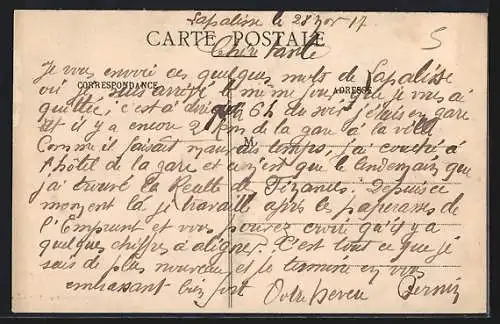 Lapalisse le 28 nov 17
CARTE POSTALE
Chère tante
5
Je vous envoie ces quelques mots de Lapalisse
CORRESPONDANCE
ADRESSE
où je suis arrivé le même jour que je vous ai
quittée, c'est à dire 6h du soir j'étais en gare
et il y a encore 2 km de la gare à la ville
Comme il faisait mauvais temps, j'ai couché à
l'hôtel de la gare et ce n'est que le lendemain que
j'ai trouvé la Recette de Finances. Depuis ce
moment là je travaille après les paperasses de
l'Emprunt et vous pouvez croire qu'il y a
quelques chiffres à aligner. C'est tout ce que je
sais de plus nouveau et je termine en vous
embrassant bien fort Votre neveu